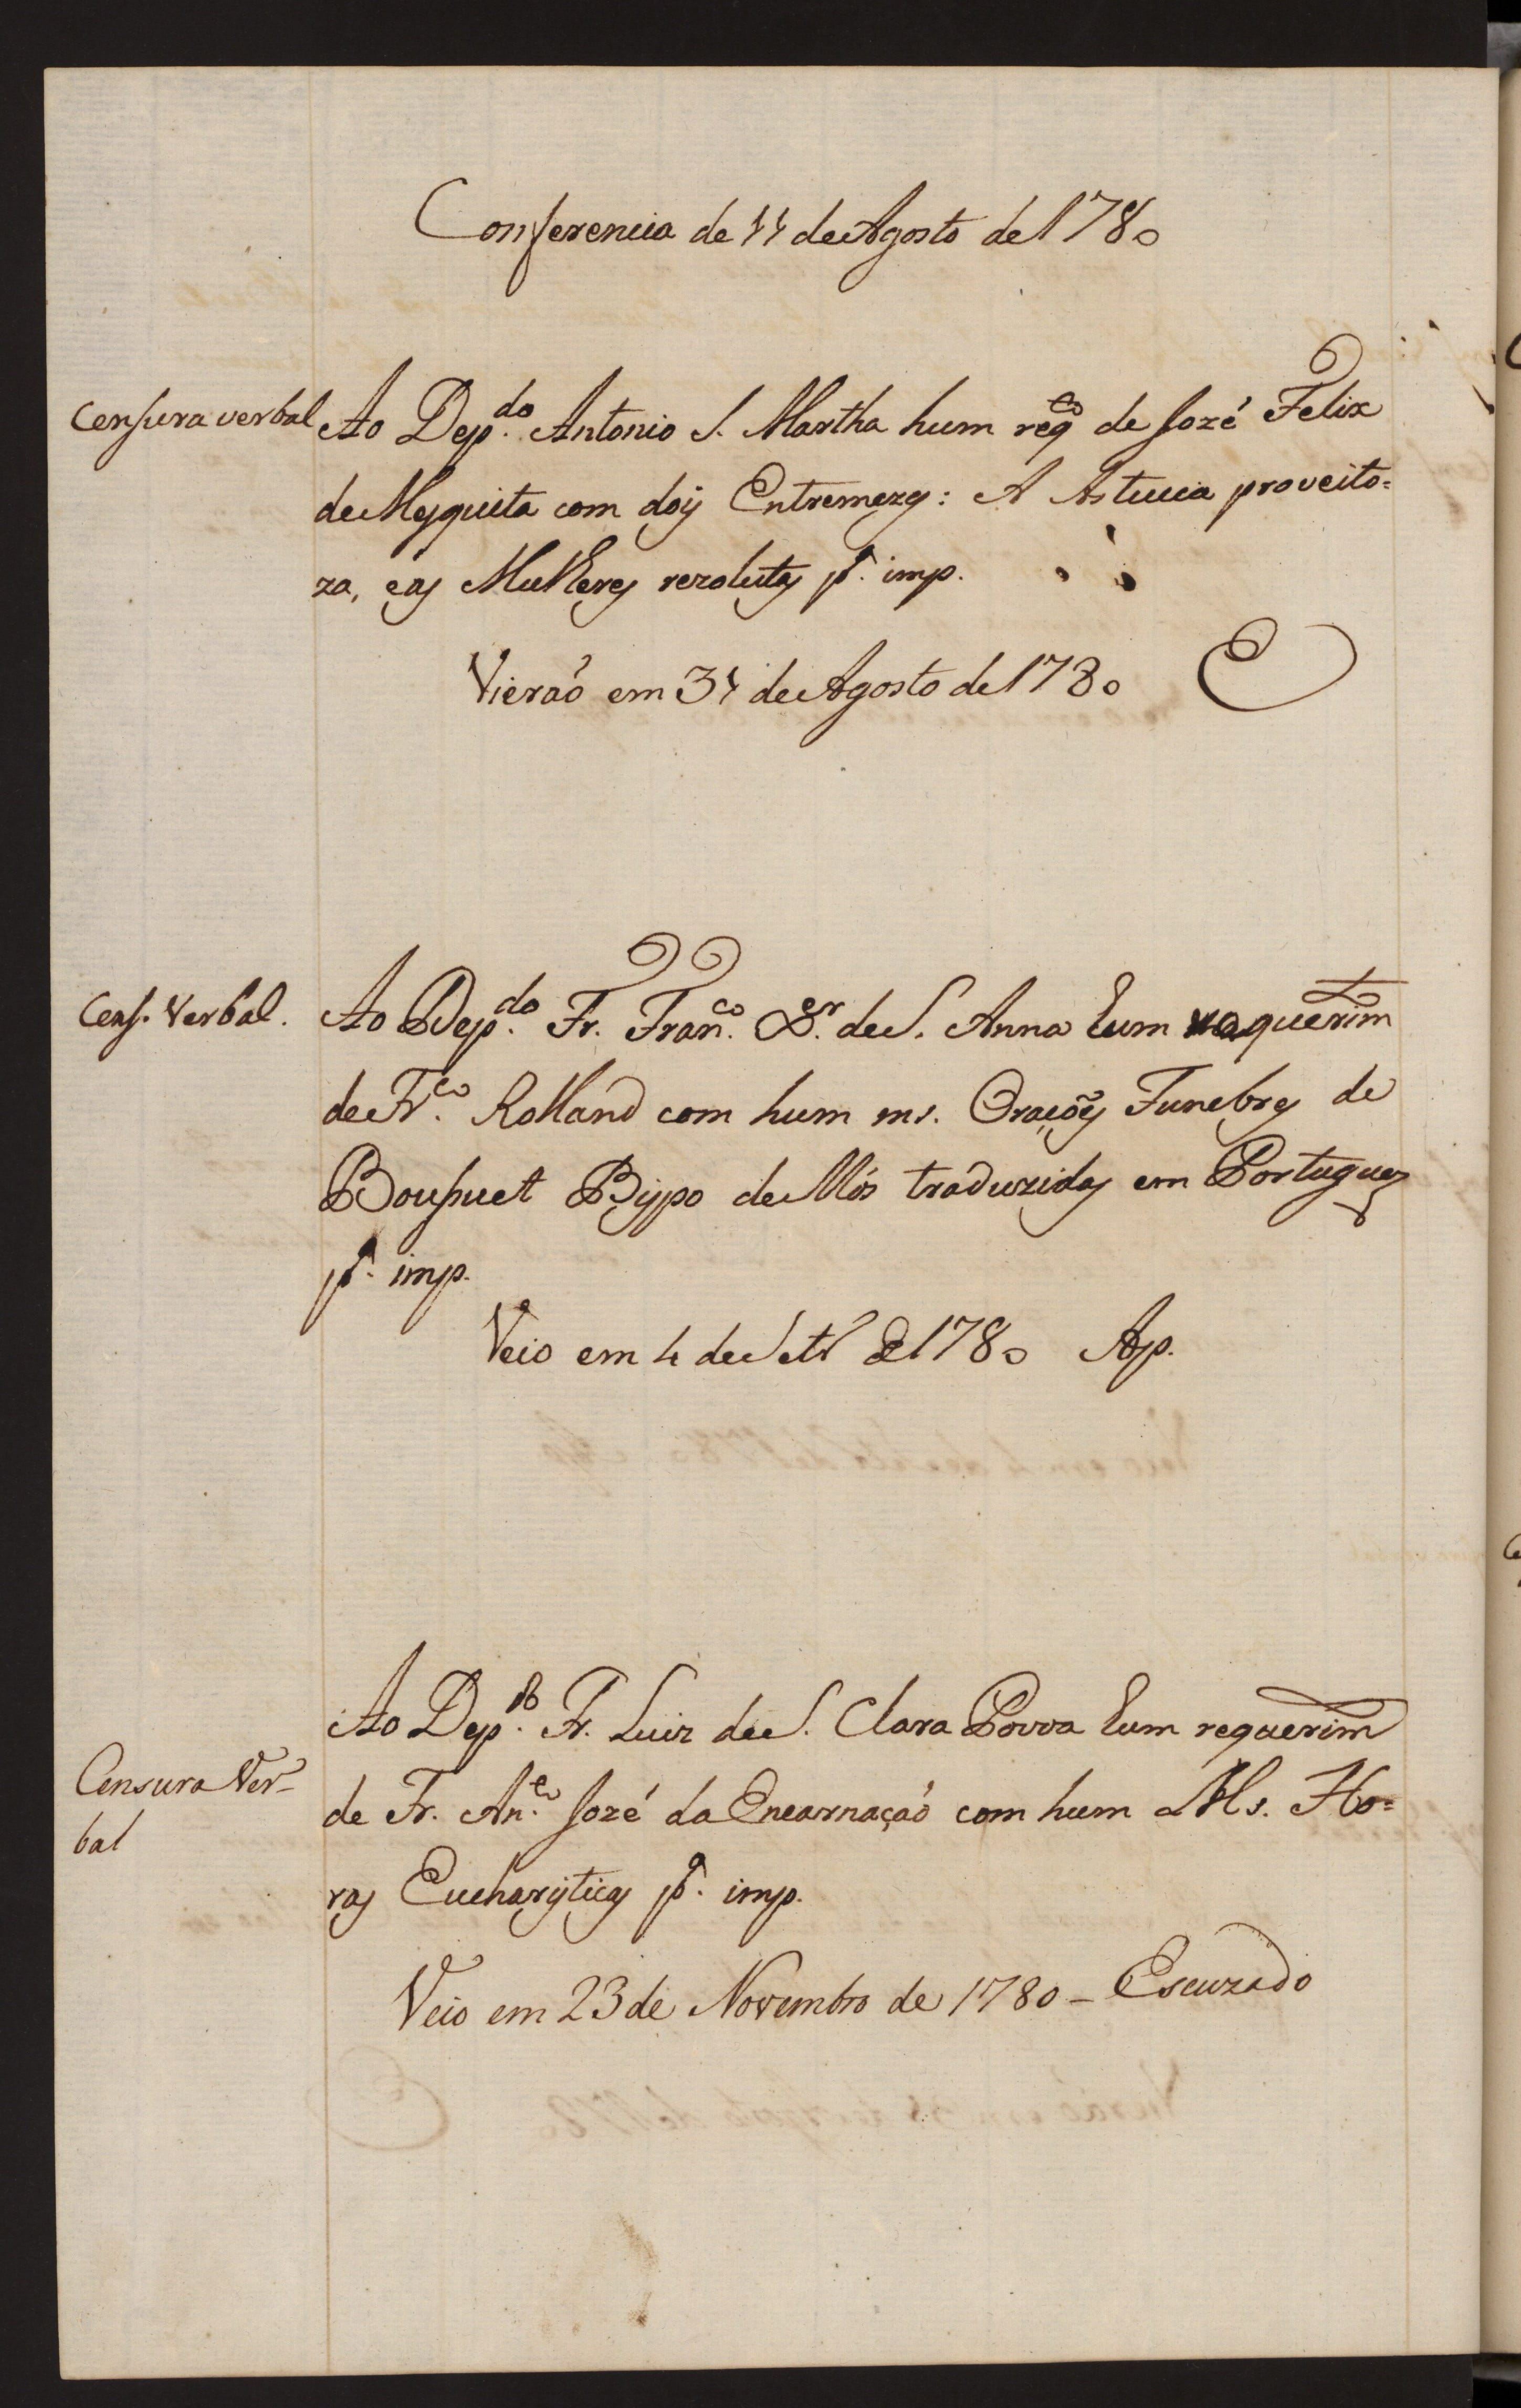 Conferencia de 11 de Agosto de 1780
Censura verbal
Ao Dep.do Antonio S. Martha hum reqto de Jozé Felix
de Mesquita com dois Entremezes: A Astucia proveito=
za, e as Mulheres rezolutas pa. imp.
Vieraõ em 31 de Agosto de 1780
Cens. Verbal.
Ao Dep.do Fr. Fran.co X.er de S. Anna hum requerim
de Fr.co Rolland com hum ms. Oraçoẽs Funebres de
Bousuet Bispo de Mós traduzidas em Portuguez
pa. imp.
Veio em 4 de Setr de 1780 Ap.
Censura Ver-
bal
Ao Dep.do Fr. Luiz de S. Clara Povoa hum requerim
de Fr. An.to Jozé da Encarnaçaõ com hum Ms. Ho=
ras Eucharisticas pa. imp.
Veio em 23 de Novembro de 1780 - Escuzado